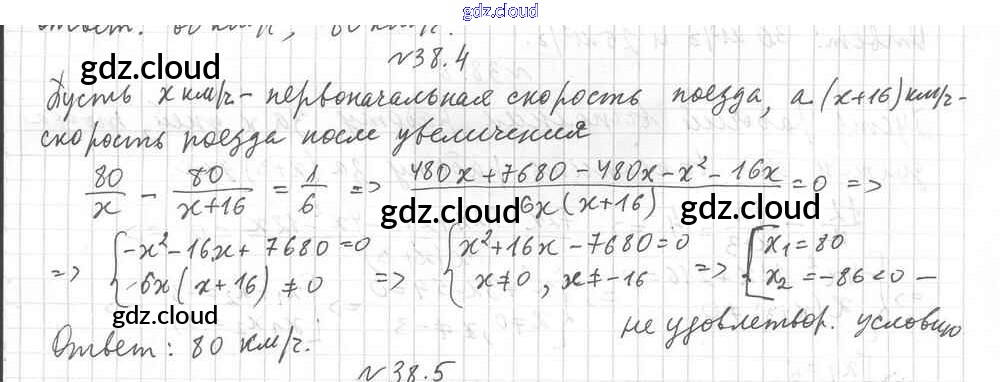 gdz.cloud
Ответ: 60 км/ч, 80 км/ч.
№38.4
gdz.cloud
Пусть x км/ч - первоначальная скорость поезда, а (x+16) км/ч -
скорость поезда после увеличения
80/x - 80/(x+16) = 1/6 => (480x + 7680 - 480x - x² - 16x)/(6x(x+16)) = 0 =>
gdz.cloud gdz.cloud
=> { -x² - 16x + 7680 = 0 => { x² + 16x - 7680 = 0 => [ x₁ = 80
-6x(x+16) ≠ 0 x ≠ 0, x ≠ -16 x₂ = -86 < 0 -
gdz.cloud
не удовлетвор. условию
Ответ: 80 км/ч.
№38.5